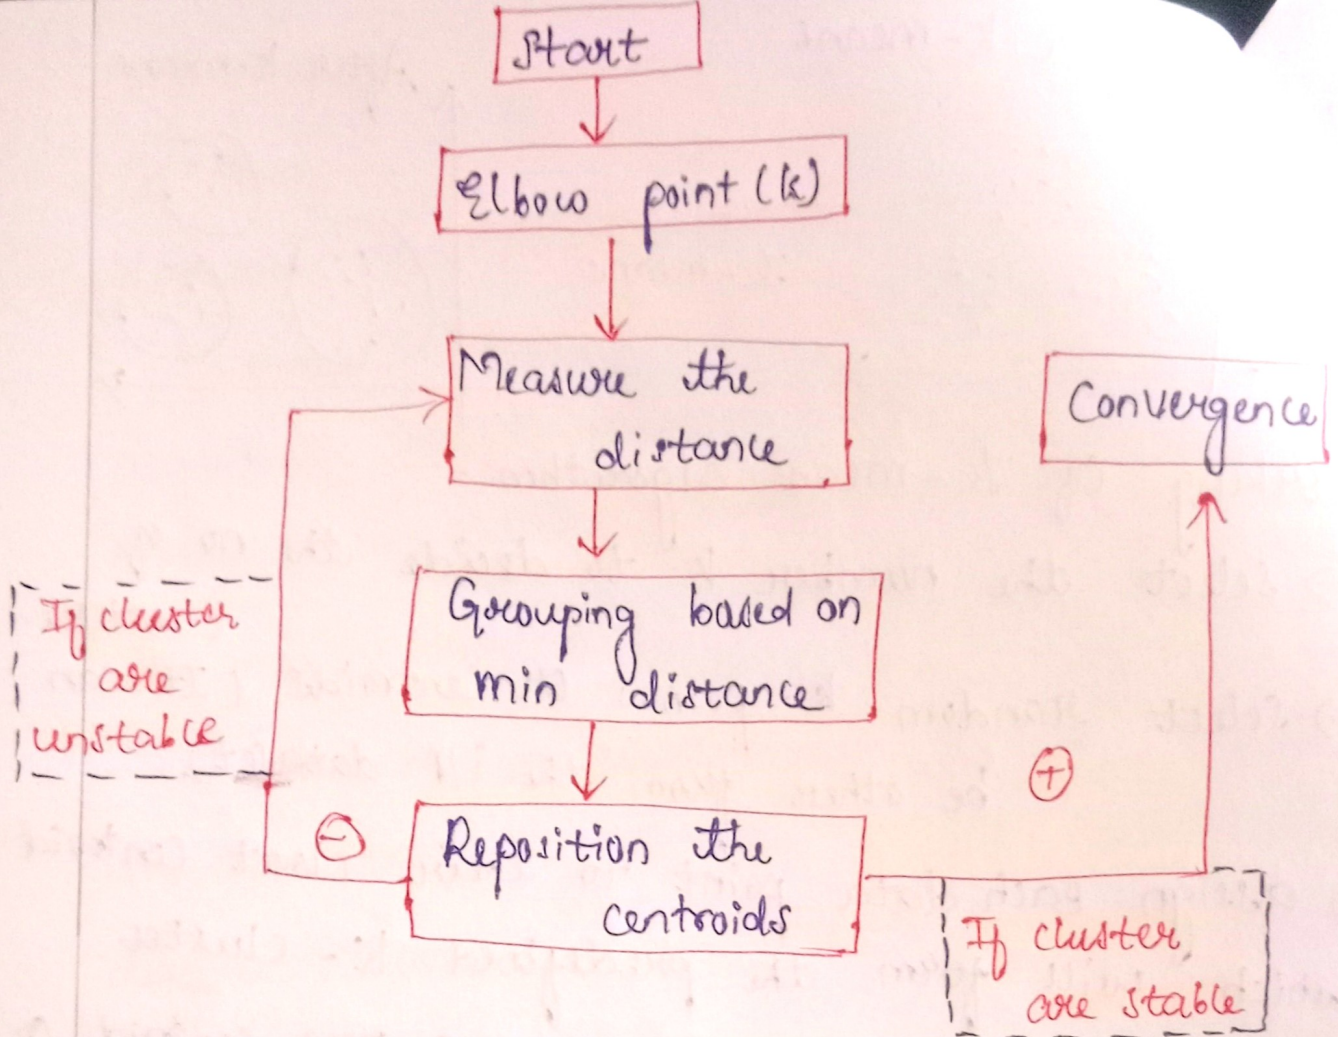 Start
Elbow point (k)
Measure the
distance
Convergence
Grouping based on
min distance
If cluster
are
unstable
+
-
Reposition the
centroids
If cluster
are stable